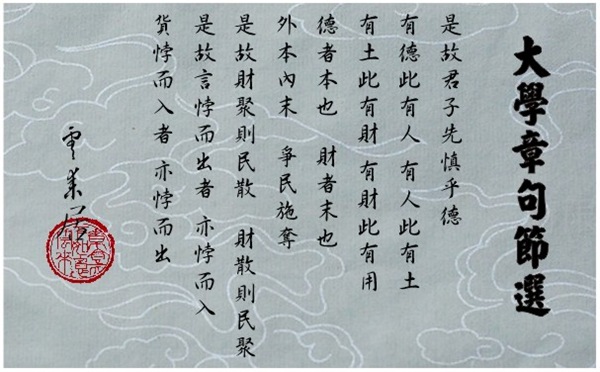 大學章句節選
是故君子先慎乎德
有德此有人 有人此有土
有土此有財 有財此有用
德者本也 財者末也
外本內末 爭民施奪
是故財聚則民散 財散則民聚
是故言悖而出者 亦悖而入
貨悖而入者 亦悖而出